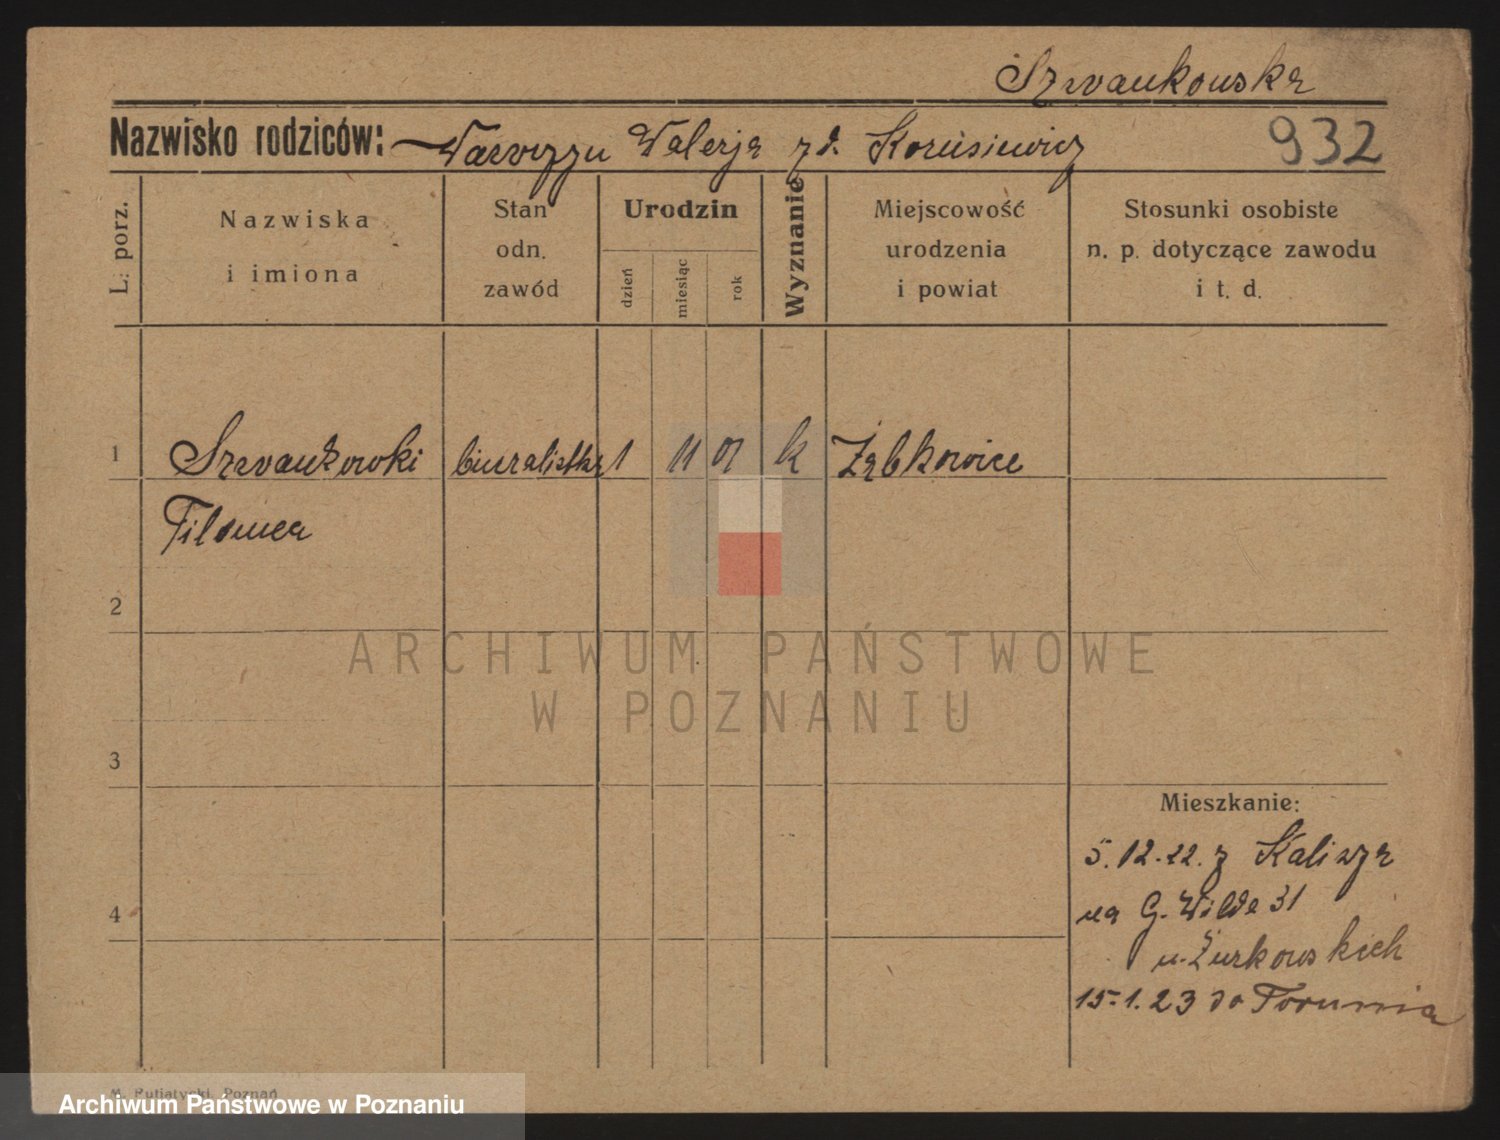 Szwankowska
Nazwisko rodziców: Wawrzyn Walerja z d. Korusiewicz
932
L. porz.
Nazwiska
i imiona
Stan
odn.
zawód
Urodzin
dzień
miesiąc
rok
Wyznanie
Miejscowość
urodzenia
i powiat
Stosunki osobiste
n. p. dotyczące zawodu
i t. d.
1
Szwankowski biuralistka 1 11 01 k Ząbkowice
Filomea
2
3
4
Mieszkanie:
5.12.22. z Kalisza
na G. Wilda 31
u Żurkowskich
15.1.23 do Torunia
ARCHIWUM PAŃSTWOWE
W POZNANIU
M. Putiatycki, Poznań
Archiwum Państwowe w Poznaniu